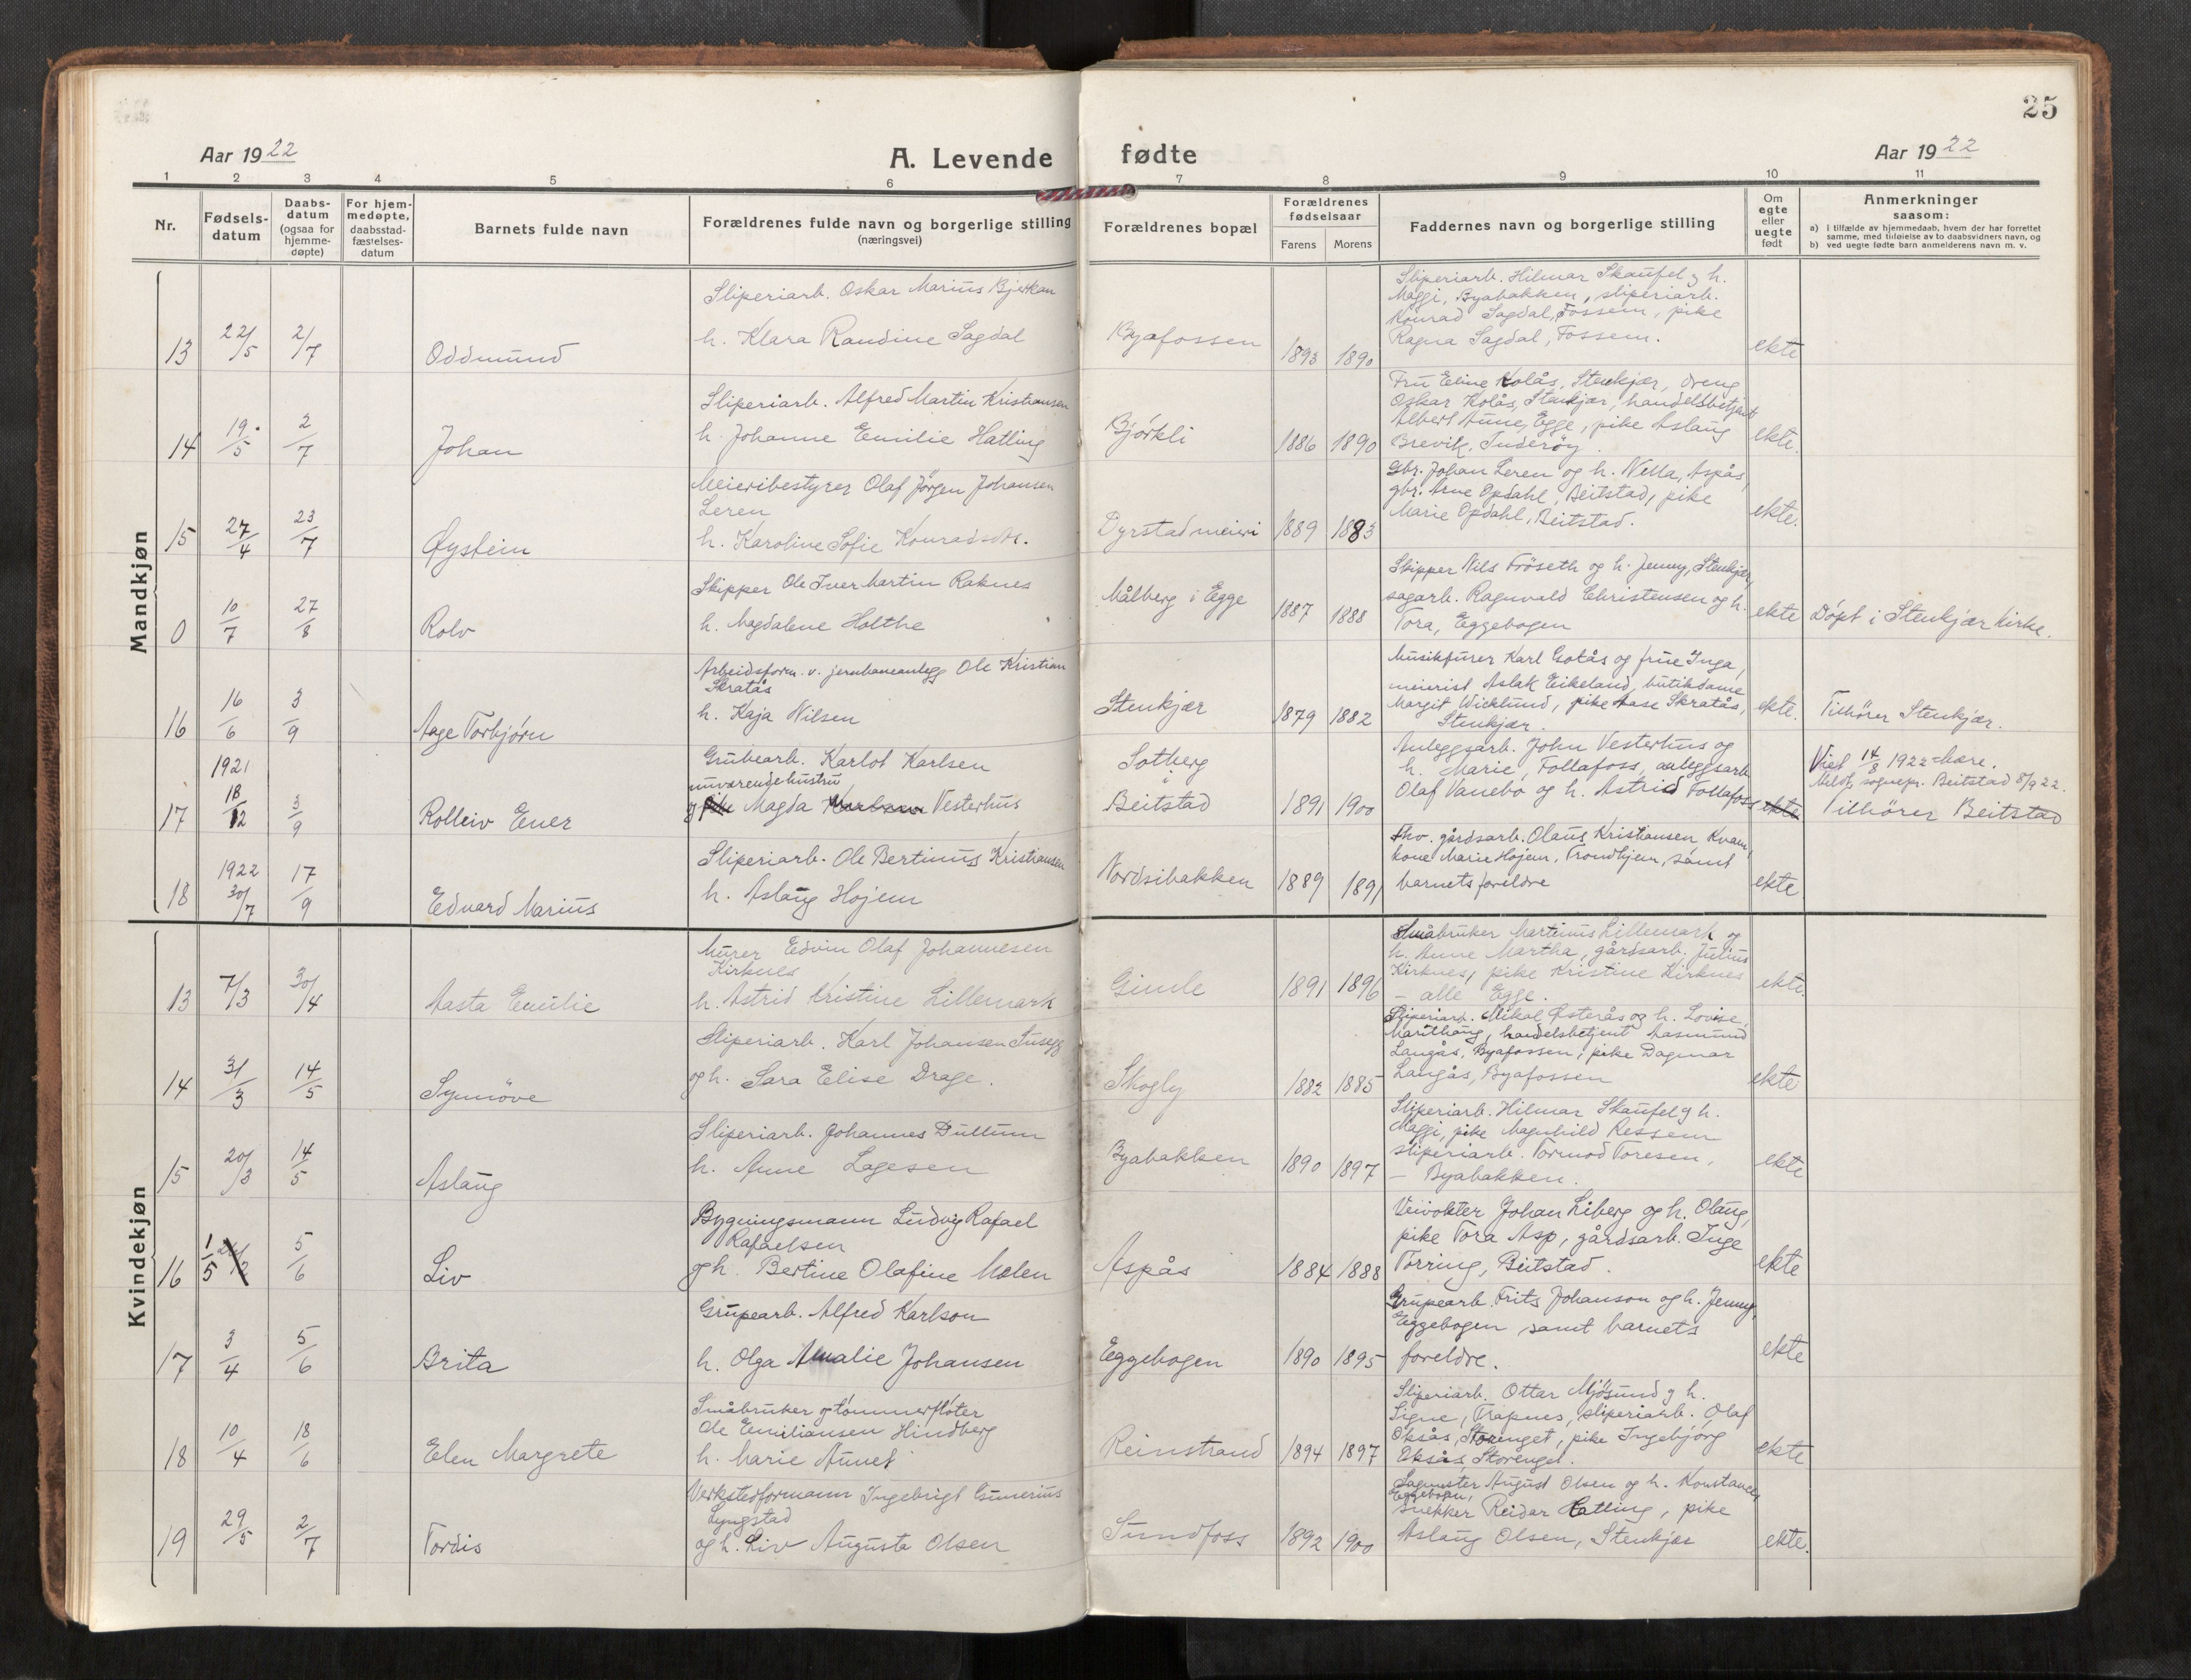 25
Aar 1922
A. Levende fødte
Aar 1922
1 2 3 4 5 6 7 8 9 10 11
Nr.
Fødsels-datum
Daabs-datum (ogsaa for hjemme-døpte)
For hjem-medøpte, daabsstad-fæstelses-datum
Barnets fulde navn
Forældrenes fulde navn og borgerlige stilling
(næringsvei)
Forældrenes bopæl
Forældrenes fødselsaar
Farens Morens
Faddernes navn og borgerlige stilling
Om egte eller uegte født
Anmerkninger
saasom:
a) i tilfælde av hjemmedaab, hvem der har forrettet samme, med tilføielse av to daabsvidners navn, og
b) ved uegte fødte barn anmelderens navn m. v.
Mandkjøn
13 22/5 2/7 Oddmund
Sliperiarb. Oskar Marius Bjerkan
h. Klara Randine Sagdal
Byafossen 1893 1890
Sliperiarb. Hilmar Skaufel og h.
Maggi, Byabakken, sliperiarb.
Konrad Sagdal, Fossem, pike
Ragna Sagdal, Fossem.
ekte
14 19/5 2/7 Johan
Sliperiarb. Alfred Martin Kristiansen
h. Johanne Emilie Hatling
Bjørkli 1886 1890
Fru Eline Kolås, Stenkjær, dreng
Oskar Kolås, Stenkjær, handelsbetjent
Albert Aune, Egge, pike Aslaug
Brevik, Inderøy.
ekte.
15 27/4 23/7 Øystein
Meieribestyrer Olaf Jörgen Johansen
Leren
h. Karoline Sofie Konradsdtr.
Dyrstad meieri 1889 1883
Gbr. Johan Leren og h. Nella, Aspås,
gbr. Arne Opdahl, Beitstad, pike
Marie Opdahl, Beitstad.
ekte.
0 10/7 27/8 Rolv
Skipper Ole Iver Martin Raknes
h. Magdalene Holthe
Målberg i Egge 1887 1888
Skipper Nils Fröseth og h. Jenny, Stenkjær,
sagarb. Ragnvald Christensen og h.
Tora, Eggebogen
ekte
Döpt i Stenkjær kirke.
16 16/6 3/9 Aage Torbjørn
Arbeidsform. v. jernbaneanlegg Ole Kristian
Skratås
h. Kaja Nilsen
Stenkjær 1879 1882
Musikfurer Karl Gotås og frue Inga,
meierist Aslak Eikeland, butikdame
Margit Wicklund, pike Aase Skratås,
Stenkjær.
ekte.
Tilhører Stenkjær.
17 1921 18/12 3/9 Rolleiv Ener
Grubearb. Karlot Karlsen
nuværende hustru
og pike Magda Karlsen Vesterhus
Sotberg
i
Beitstad 1891 1900
Anleggsarb. John Vesterhus og
h. Marie, Follafoss, anleggsarb.
Olaf Vanebo og h. Astrid Follafoss
ekte
Viet 14/8 1922 Mære.
Meldt sognepr. Beitstad 8/9 22.
Tilhörer Beitstad
18 1922 30/7 17/9 Edvard Marius
Sliperiarb. Ole Bertinus Kristiansen
h. Aslaug Hojem
Nordsibakken 1889 1891
Fhv. gårdsarb. Olaus Kristiansen Kvam,
kone Marie Hojem, Trondhjem, samt
barnets foreldre
ekte
Kvindekjøn
13 7/3 30/4 Aasta Emilie
Murer Edvin Olaf Johannesen
Kirknes
h. Astrid Kristine Lillemark
Gimle 1891 1896
Småbruker Martinus Lillemark og
h. Anne Martha, gårdsarb. Julius
Kirknes, pike Kristine Kirknes
– alle Egge.
ekte.
14 31/3 14/5 Synnöve
Sliperiarb. Karl Johansen Tusegg
og h. Sara Elise Drage.
Skogly 1882 1885
Sliperiarb. Mikal Østerås og h. Lovise,
Marithaug, handelsbetjent Aasmund
Langås, Byafossen; pike Dagmar
Langås, Byafossen
ekte
15 20/3 14/5 Aslaug
Sliperiarb. Johannes Dullum
h. Anne Lagesen
Byabakken 1890 1897
Sliperiarb. Hilmar Skaufel og h.
Maggi, pike Magnhild Ressem
sliperiarb. Tormod Toresen,
– Byabakken.
ekte
16 1/5 5/6 Liv
Bygningsmann Ludvig Rafael
Rafaelsen
og h. Bertine Olafine Melen
Aspås 1884 1888
Veivokter Johan Liberg og h. Olaug,
pike Tora Asp, gårdsarb. Inge
Torring, Beitstad.
ekte
17 3/4 5/6 Brita
Grupearb. Alfred Karlson
h. Olga Amalie Johansen
Eggebogen 1890 1895
Grupearb. Frits Johanson og h. Jenny,
Eggebogen samt barnets
foreldre.
ekte
18 10/4 18/6 Elen Margrete
Småbruker og tömmerflöter
Ole Emiliansen Hindberg
h. Marie Aunet
Reinstrand 1894 1897
Sliperiarb. Ottar Mjösund og h.
Signe, Trapnes, sliperiarb. Olaf
Oksås, Storenget, pike Ingebjörg
Eksås, Storenget.
ekte
19 29/5 2/7 Tordis
Verkstedformann Ingebrigt Gunerius
Lyngstad
og h. Liv Augusta Olsen
Sundfoss 1892 1900
Sagmester August Olsen og h. Konstance
Eggebogen,
snekker Reidar Hatling, pike
Aslaug Olsen, Stenkjær
ekte.